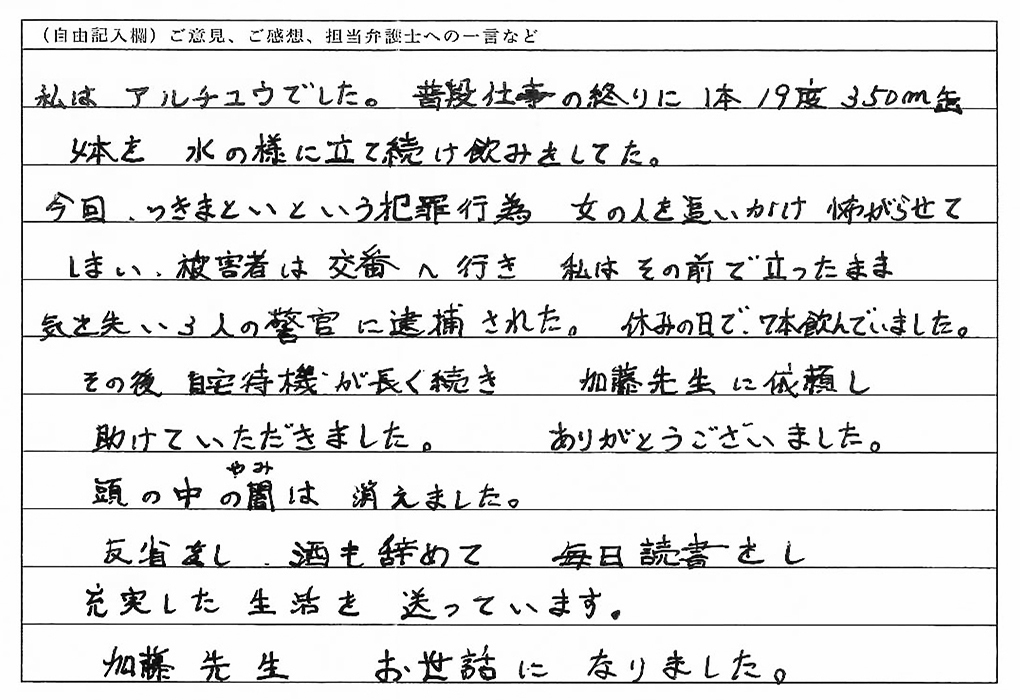 （自由記入欄）ご意見、ご感想、担当弁護士への一言など
私は アルチュウでした。 普段仕事の終りに 1本 19度 350m缶
4本を 水の様に立て続け飲みをしてた。
今回、つきまといという犯罪行為 女の人を追いかけ 怖がらせて
しまい、被害者は交番へ行き 私はその前で立ったまま
気を失い3人の警官に逮捕された。 休みの日で、7本飲んでいました。
その後 自宅待機が長く続き 加藤先生に依頼し
助けていただきました。 ありがとうございました。
頭の中の闇は 消えました。
やみ
反省をし、酒も辞めて 毎日読書をし
充実した生活を 送っています。
加藤先生 お世話になりました。